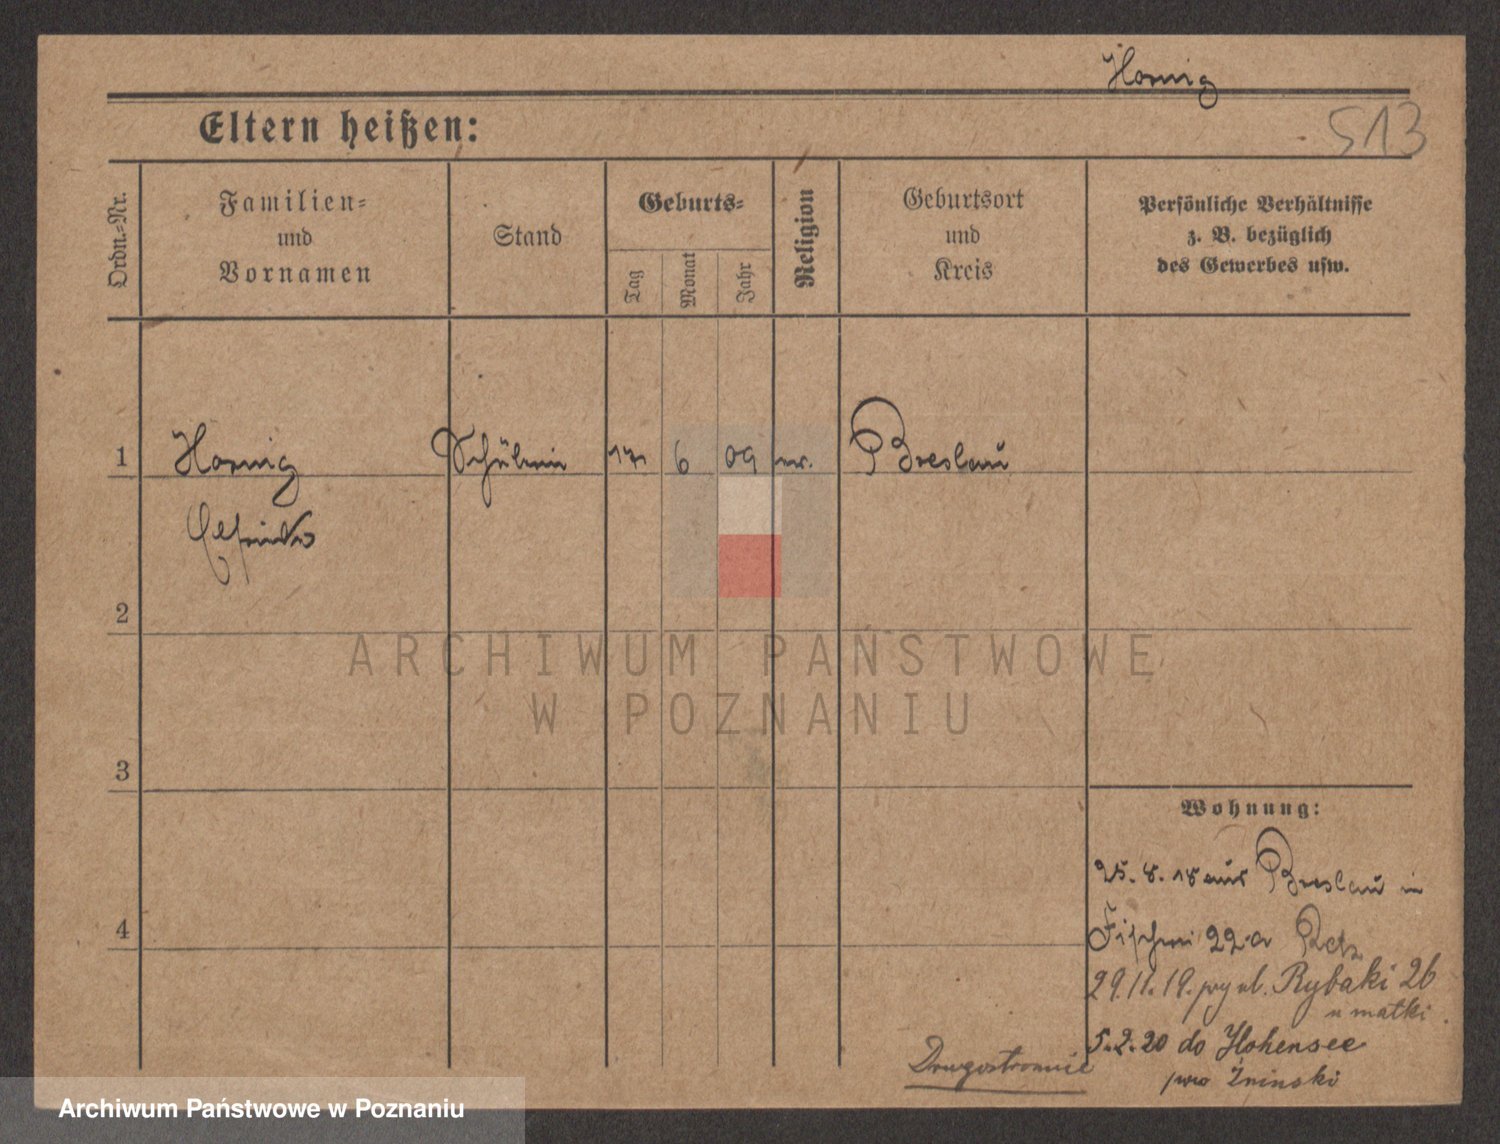 Hornig
513
Eltern heißen:
Ordn.-Nr.
Familien-
und
Vornamen
Stand
Geburts-
Tag
Monat
Jahr
Religion
Geburtsort
und
Kreis
Persönliche Verhältnisse
z. B. bezüglich
des Gewerbes usw.
1
Hornig Schülerin 17 6 09 ev. Breslau
Elfriede
2
ARCHIWUM PAŃSTWOWE
W POZNANIU
3
Wohnung:
25.8.18 aus Breslau in
4
Fischerei 22a
29.11.19. przy ul. Rybaki 26
u matki.
5.2.20 do Hohensee
Drugostronnie
pow Żninski
Archiwum Państwowe w Poznaniu